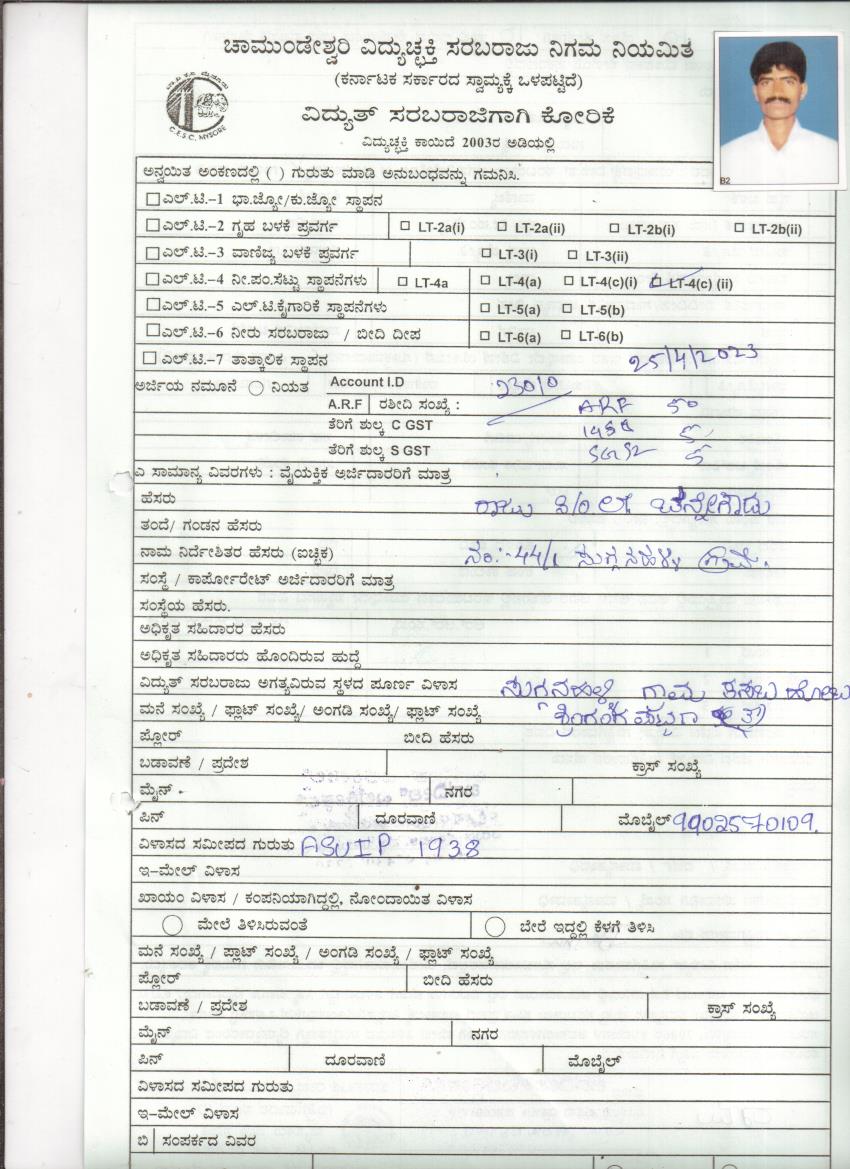 ಚಾಮುಂಡೇಶ್ವರಿ ವಿದ್ಯುಚ್ಛಕ್ತಿ ಸರಬರಾಜು ನಿಗಮ ನಿಯಮಿತ
(ಕರ್ನಾಟಕ ಸರ್ಕಾರದ ಸ್ವಾಮ್ಯಕ್ಕೆ ಒಳಪಟ್ಟಿದೆ)
C.E.S.C, MYSORE
ವಿದ್ಯುತ್ ಸರಬರಾಜಿಗಾಗಿ ಕೋರಿಕೆ
ವಿದ್ಯುಚ್ಛಕ್ತಿ ಕಾಯಿದೆ 2003ರ ಅಡಿಯಲ್ಲಿ
B2
ಅನ್ವಯಿತ ಅಂಕಣದಲ್ಲಿ ( ) ಗುರುತು ಮಾಡಿ ಅನುಬಂಧವನ್ನು ಗಮನಿಸಿ.
ಎಲ್.ಟಿ.–1 ಭಾ.ಜ್ಯೋ/ಕು.ಜ್ಯೋ ಸ್ಥಾಪನ
ಎಲ್.ಟಿ.–2 ಗೃಹ ಬಳಕೆ ಪ್ರವರ್ಗ LT-2a(i) LT-2a(ii) LT-2b(i) LT-2b(ii)
ಎಲ್.ಟಿ.–3 ವಾಣಿಜ್ಯ ಬಳಕೆ ಪ್ರವರ್ಗ LT-3(i) LT-3(ii)
ಎಲ್.ಟಿ.–4 ನೀ.ಪಂ.ಸೆಟ್ಟು ಸ್ಥಾಪನೆಗಳು LT-4a LT-4(a) LT-4(c)(i) LT-4(c) (ii)
ಎಲ್.ಟಿ.–5 ಎಲ್.ಟಿ.ಕೈಗಾರಿಕೆ ಸ್ಥಾಪನೆಗಳು LT-5(a) LT-5(b)
ಎಲ್.ಟಿ.–6 ನೀರು ಸರಬರಾಜು / ಬೀದಿ ದೀಪ LT-6(a) LT-6(b)
ಎಲ್.ಟಿ.–7 ತಾತ್ಕಾಲಿಕ ಸ್ಥಾಪನ 25/4/2023
ಅರ್ಜಿಯ ನಮೂನೆ ನಿಯತ Account I.D 23010
A.R.F ರಶೀದಿ ಸಂಖ್ಯೆ : ARF 50
ತೆರಿಗೆ ಶುಲ್ಕ C GST
ತೆರಿಗೆ ಶುಲ್ಕ S GST
ಎ ಸಾಮಾನ್ಯ ವಿವರಗಳು : ವೈಯಕ್ತಿಕ ಅರ್ಜಿದಾರರಿಗೆ ಮಾತ್ರ
ಹೆಸರು ರಾಮು S/O ಲೇ ಚನ್ನೇಗೌಡ
ತಂದೆ/ ಗಂಡನ ಹೆಸರು
ನಾಮ ನಿರ್ದೇಶಿತರ ಹೆಸರು (ಐಚ್ಛಿಕ) ನಂ:-44/1 ಸುಗ್ಗನಹಳ್ಳಿ ಗ್ರಾಮ.
ಸಂಸ್ಥೆ / ಕಾರ್ಪೋರೇಟ್ ಅರ್ಜಿದಾರರಿಗೆ ಮಾತ್ರ
ಸಂಸ್ಥೆಯ ಹೆಸರು.
ಅಧಿಕೃತ ಸಹಿದಾರರ ಹೆಸರು
ಅಧಿಕೃತ ಸಹಿದಾರರು ಹೊಂದಿರುವ ಹುದ್ದೆ
ವಿದ್ಯುತ್ ಸರಬರಾಜು ಅಗತ್ಯವಿರುವ ಸ್ಥಳದ ಪೂರ್ಣ ವಿಳಾಸ ಸುಗ್ಗನಹಳ್ಳಿ ಗ್ರಾಮ ಕಸಬ ಹೋಬಳಿ
ಮನೆ ಸಂಖ್ಯೆ / ಫ್ಲಾಟ್ ಸಂಖ್ಯೆ/ ಅಂಗಡಿ ಸಂಖ್ಯೆ/ ಫ್ಲಾಟ್ ಸಂಖ್ಯೆ ಶ್ರೀರಂಗಪಟ್ಟಣ (ತಾ)
ಫ್ಲೋರ್ ಬೀದಿ ಹೆಸರು
ಬಡಾವಣೆ / ಪ್ರದೇಶ ಕ್ರಾಸ್ ಸಂಖ್ಯೆ
ಮೈನ್ ನಗರ
ಪಿನ್ ದೂರವಾಣಿ ಮೊಬೈಲ್ 9902570109.
ವಿಳಾಸದ ಸಮೀಪದ ಗುರುತು ASUIP 1938
ಇ–ಮೇಲ್ ವಿಳಾಸ
ಖಾಯಂ ವಿಳಾಸ / ಕಂಪನಿಯಾಗಿದ್ದಲ್ಲಿ, ನೋಂದಾಯಿತ ವಿಳಾಸ
ಮೇಲೆ ತಿಳಿಸಿರುವಂತೆ ಬೇರೆ ಇದ್ದಲ್ಲಿ ಕೆಳಗೆ ತಿಳಿಸಿ
ಮನೆ ಸಂಖ್ಯೆ / ಪ್ಲಾಟ್ ಸಂಖ್ಯೆ / ಅಂಗಡಿ ಸಂಖ್ಯೆ / ಫ್ಲಾಟ್ ಸಂಖ್ಯೆ
ಫ್ಲೋರ್ ಬೀದಿ ಹೆಸರು
ಬಡಾವಣೆ / ಪ್ರದೇಶ ಕ್ರಾಸ್ ಸಂಖ್ಯೆ
ಮೈನ್ ನಗರ
ಪಿನ್ ದೂರವಾಣಿ ಮೊಬೈಲ್
ವಿಳಾಸದ ಸಮೀಪದ ಗುರುತು
ಇ–ಮೇಲ್ ವಿಳಾಸ
ಬಿ ಸಂಪರ್ಕದ ವಿವರ